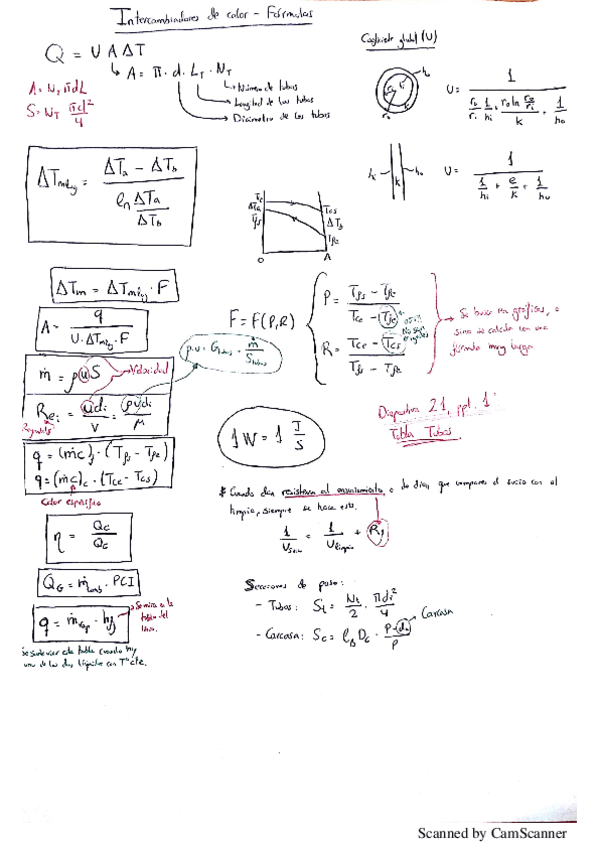 Intercambiadores de calor - Fórmulas
Q = U A ΔT
A = π · d · L_T · N_T
Número de tubos
Longitud de los tubos
Diámetro de los tubos
A = N_T π d L
S = N_T πd²/4
Coeficiente global (U)
h_o
h_i
r_i
r_o
U = 1 / (r_o/r_i · 1/h_i + r_o ln(r_o/r_i)/k + 1/h_o)
h_i k h_o
U = 1 / (1/h_i + e/k + 1/h_o)
ΔT_mlog = (ΔT_a - ΔT_b) / ln(ΔT_a/ΔT_b)
T_ce
ΔT_a
T_fs
T_cs
ΔT_b
T_fe
0 A
ΔT_m = ΔT_mlog · F
A = q / (U · ΔT_mlog · F)
F = F(P,R)
P = (T_fs - T_fe) / (T_ce - T_fe)
R = (T_ce - T_cs) / (T_fs - T_fe)
Se busca en gráficas, o
sino se calcula con una
fórmula muy larga
ṁ = ρuS
Velocidad
ρ·u = G_tubos = ṁ/S_tubos
Re_i = u d_i/ν = ρ u d_i/μ
Reynolds
Diapositiva 21, ppt. 1
Tabla Tubos.
1 W = 1 J/s
q = (ṁc)_f · (T_fs - T_fe)
q = (ṁc)_c · (T_ce - T_cs)
Calor específico
* Cuando dan resistencia al ensuciamiento o te dicen que compares el sucio con el
limpio, siempre se hace esto.
1/U_sucio = 1/U_limpio + R_f
η = Q_c/Q_c
Q_G = ṁ_comb · PCI
q = ṁ_vap · h_fg
Se mira en la
tabla del
libro.
Se suele usar esta tabla cuando hay
uno de los dos líquidos con Tª cte.
Secciones de paso:
- Tubos: S_t = N_t/2 · πd_i²/4
- Carcasa: S_c = l_B D_c · (P - d_o)/P
Carcasa
Scanned by CamScanner